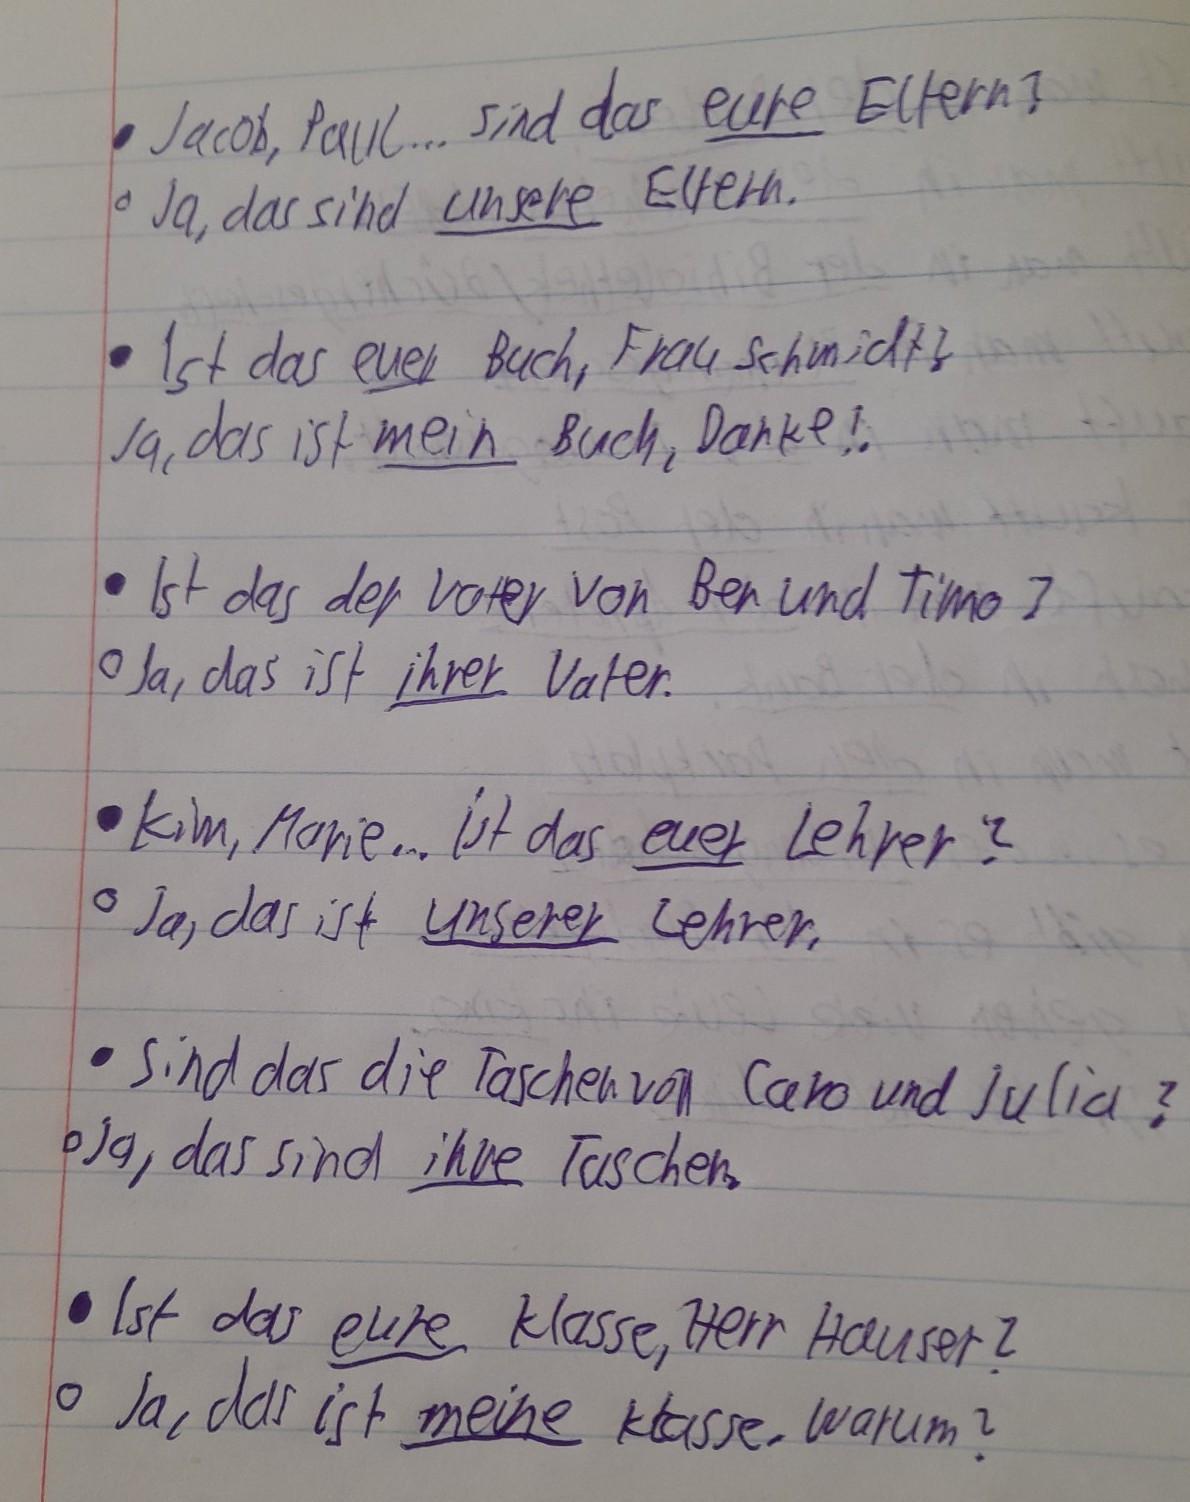 • Jacob, Paul... sind das eure Eltern?
◦ Ja, das sind unsere Eltern.
• Ist das euer Buch, Frau Schmidt?
Ja, das ist mein Buch, Danke!.
• Ist das der Vater von Ben und Timo?
◦ Ja, das ist ihrer Vater.
• Kim, Marie... ist das euer Lehrer?
◦ Ja, das ist unserer Lehrer.
• Sind das die Taschen von Caro und Julia?
◦ Ja, das sind ihre Taschen.
• Ist das eure Klasse, Herr Hauser?
◦ Ja, das ist meine Klasse. Warum?